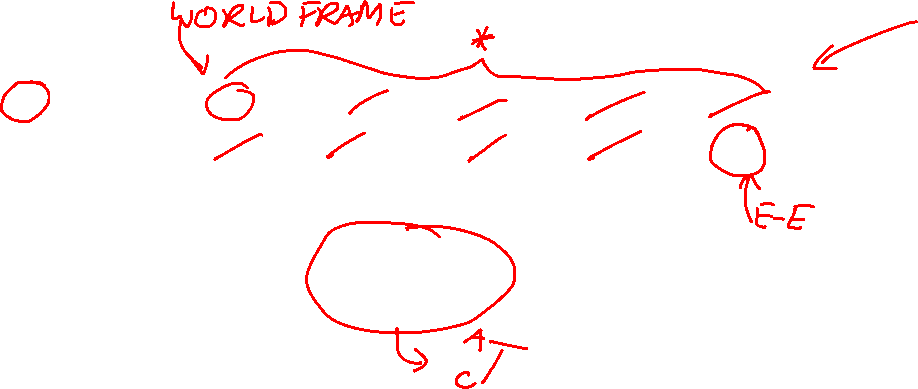 WORLD FRAME
*
E-E
A
C